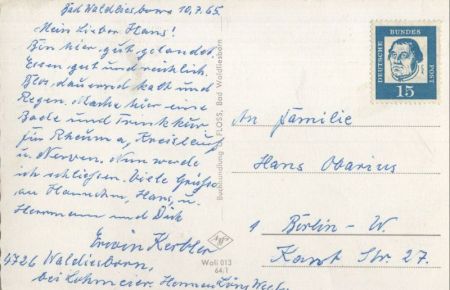 Bad Waldliesborn 10.7.65
Mein Lieber Hans!
Bin hier gut gelandet
Essen gut und reichlich.
Blos dauernd kalt und
Regen. Mache hier eine
Bade und Trinkkur
für Rheuma, Kreislauf
u Nerven. Nun werde
ich schliessen. Viele Grüße
an Hannchen, Hans, u.
Herrmann und Dich
Erwin Kerbler
4726 Waldliesborn,
bei Lohmeier. Hermann Löns
Buchhandlung U. FLOSS, Bad Waldliesborn
Agfa
Wali 013
64/1
DEUTSCHE BUNDESPOST
15
An Familie
Hans Obarius
1 Berlin - W.
Kant Str. 27.